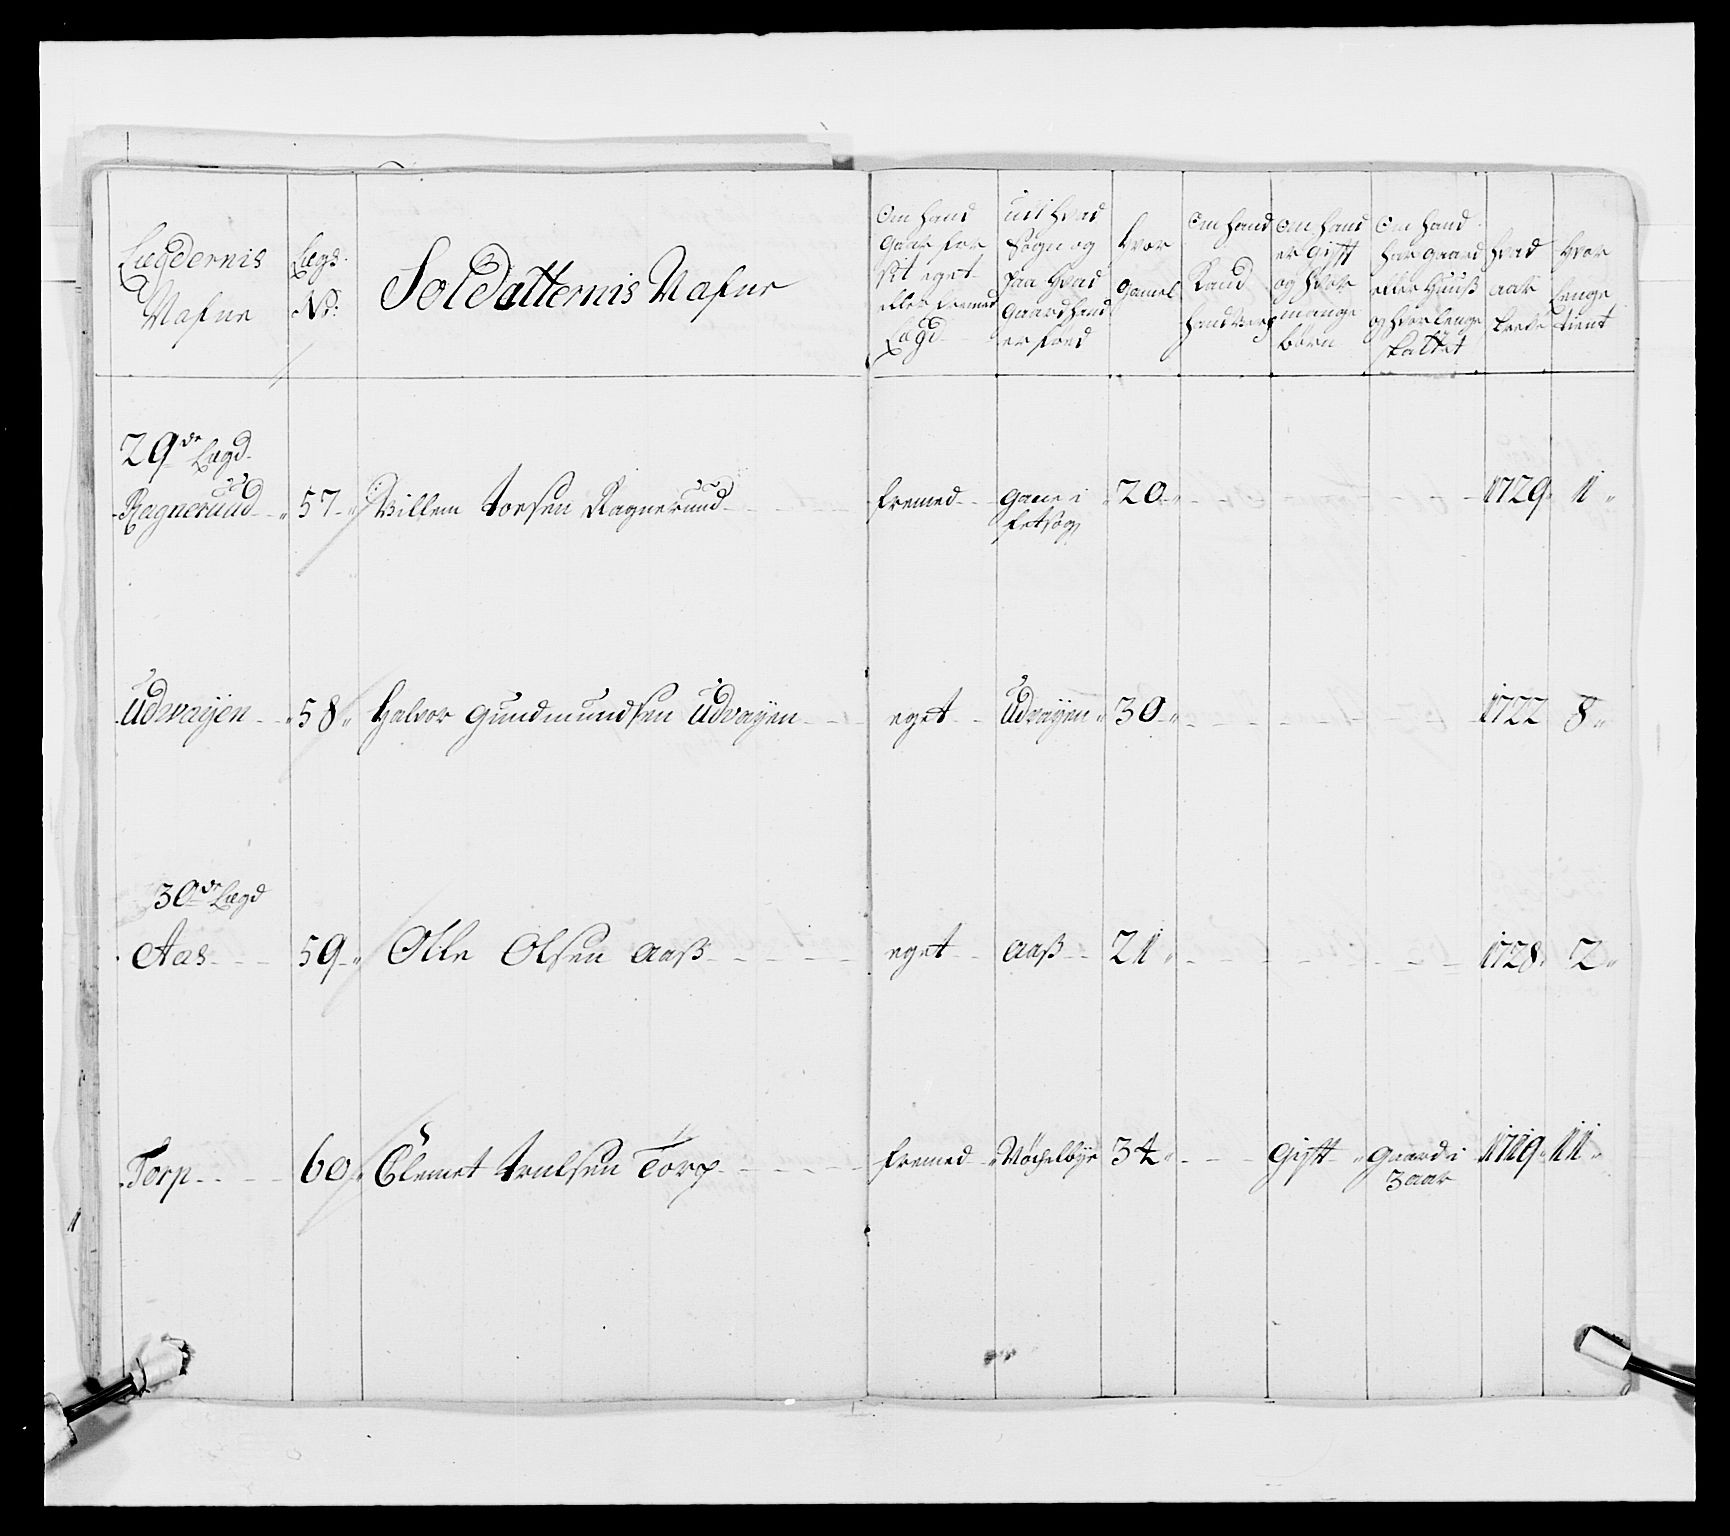 Lægdernis
Nafne
Lægs
No:
Soldatternis Nafne
Om hand
gaar for
sit eget
eller fremed
Lægd
udi hvad
Sogn og
paa hvad
gaard hand
er föed
hvor
gamel
Om hand
kand
handverch
Om hand
er gift
og hvor
mange
börn
Om hand
har gaard
eller Huuß
og hvor lenge
skattet
hvad
aar
hvor
lenge
tient
29de Lægd
Ragnerud 57 Willem torsen Ragnerud fremed gaare i 20 1729 1
fetsogn
Udvaÿen 58 Halvor gundmundsen Udvaÿen eget Udvaÿen 30 1722 8
30de Lægd
Aas 59 Olle Olsen Aaß eget Aaß 21 1728 2
Torp 60 Clemet trulsen Torp fremed 34 Gift gaard i 1719 11
3 aar